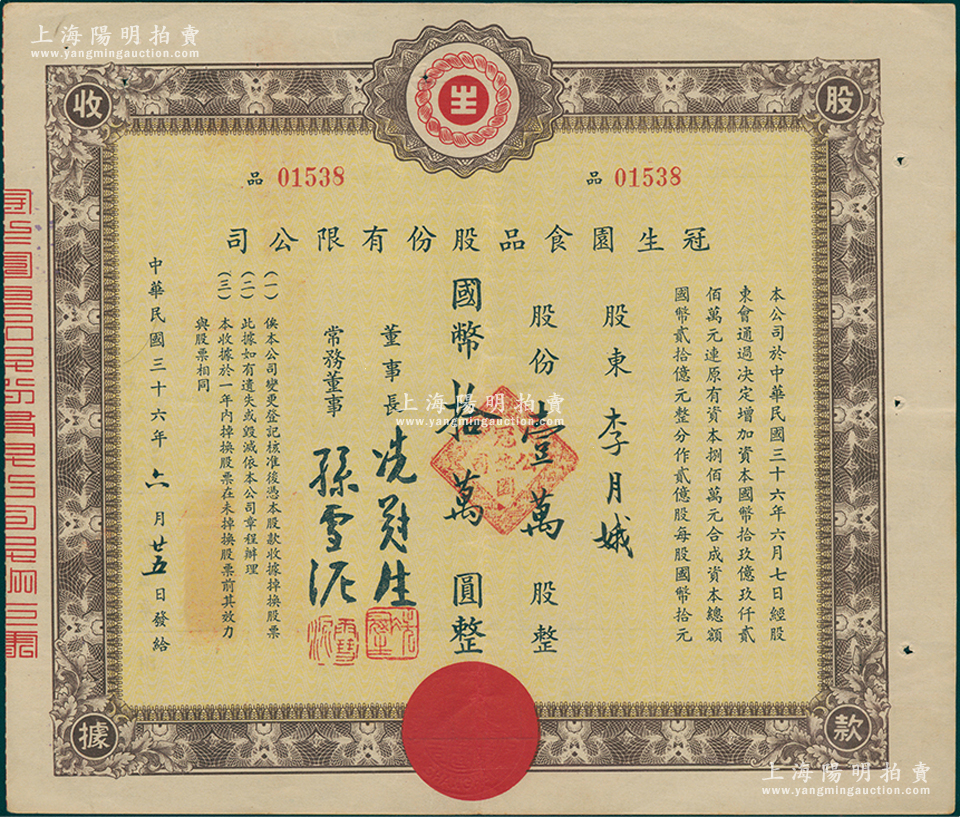 上海陽明拍賣
www.yangmingauction.com
股款收據
生
品 01538
品 01538
冠生園食品股份有限公司
本公司於中華民國三十六年六月七日經股
東會通過決定增加資本國幣拾玖億玖仟貳
佰萬元連原有資本捌佰萬元合成資本總額
國幣貳拾億元整分作貳億股每股國幣拾元
股東 李月娥
股份 壹萬 股整
國幣 拾萬 圓整
董事長 冼冠生
常務董事 孫雪泥
(一) 俟本公司變更登記核准後憑本股款收據掉換股票
(二) 此據如有遺失或毀滅依本公司章程辦理
(三) 本收據於一年內掉換股票在未掉換股票前其效力
與股票相同
中華民國三十六年 六 月 廿五 日發給
上海陽明拍賣
www.yangmingauction.com
上海陽明拍賣
www.yangmingauction.com